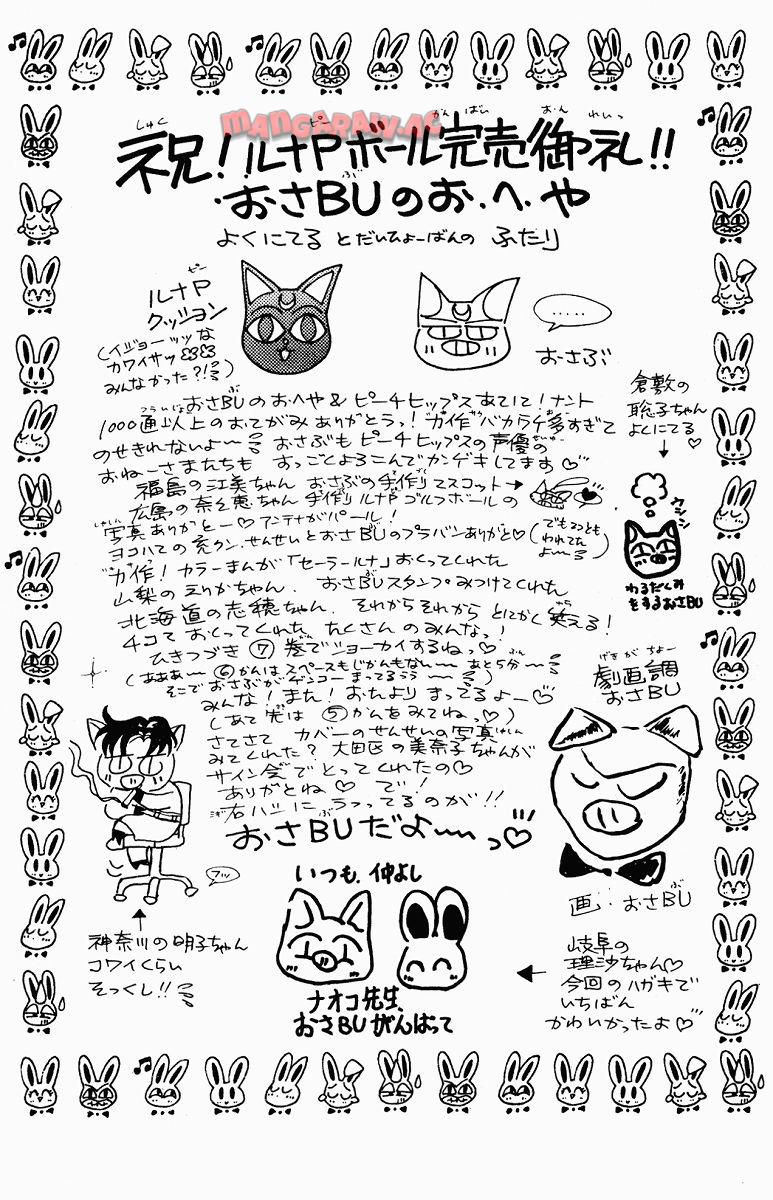 MANGARAW.AC
祝！ルナPボール完売御礼!!
おさBUのお・へ・や
よくにてる とだいひょーばんの ふたり
ルナP
クッション
(イジョーッッな
カワイサッ
みんなかった?!)
.....
おさぶ
倉敷の
聡子ちゃん
よくにてる
♡
おさBUのおへや&ピーチヒップスあてに！ナント
1000通以上のおてがみありがとうっ！力作バカラデ多すぎて
のせきれないよ〜 おさぶもピーチヒップスの声優の
おねーさまたちも おっごくよろこんでカンゲキしてます♡
福島の江美ちゃん おさぶの手作りマスコット→
広島の奈々恵ちゃん 手作りルナPゴルフボールの
写真ありがとー♡アンテナがパール！
ヨコハマの充クン、せんせいとおさBUのプラバンありがと♡
(でも2つとも
われてた
よ〜)
クシシ
わるだくみ
をするおさBU
力作！カラーまんが「セーラールナ」おくってくれた
山梨のえりかちゃん、 おさBUスタンプみつけてくれた
北海道の志穂ちゃん、それからそれから とにかく笑える！
チコて おくってくれた たくさんのみんなっ！
ひきつづき⑦巻でショーカイするねっ♡
(あああ〜⑥かんはスペースもじかんもない〜 あと5分〜
そこでおさぶがゲンコーまってるうう〜)
みんな！また！おたより まってるよー♡
(あて先は ⑤かんをみてねっ♡)
さてさて カバーのせんせいの写真
みてくれた？大田区の美奈子ちゃんが
サイン会でとってくれたの♡
ありがとね♡で！
右ハシにうつってるのが!!
おさBUだよ〜っ♡
劇画調
おさBU
画：おさBU
フッ
神奈川の明子ちゃん
コワイくらい
そっくし!!
いつも、仲よし
ナオコ先生、
おさBUがんばって
岐阜の
理沙ちゃん♡
今回のハガキで
いちばん
かわいかったよ♡